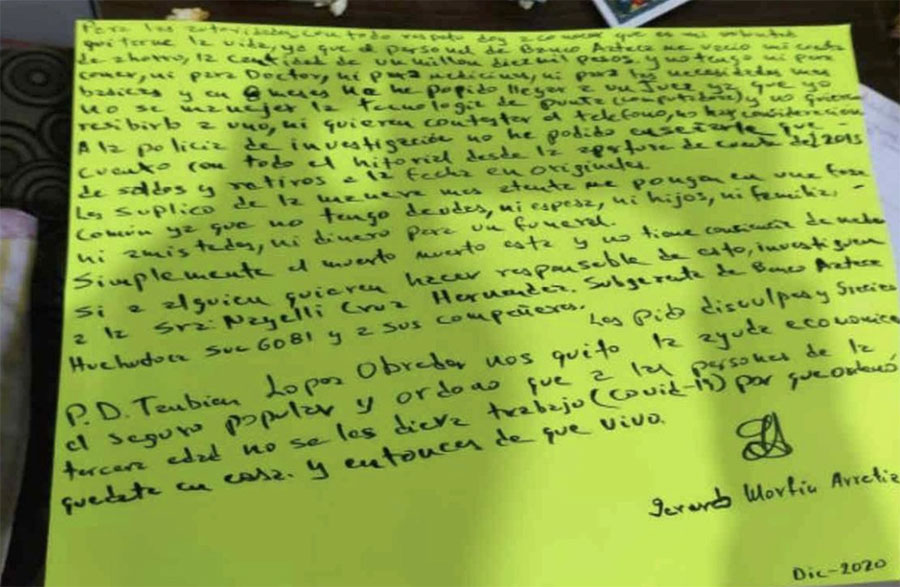 Para las autoridades, con todo respeto doy a conocer que es mi voluntad
quitarme la vida, ya que el personal de Banco Azteca me vacio mi cuenta
de ahorro, la cantidad de un millon diez mil pesos y no tengo ni para
comer, ni para Doctor, ni para medicina, ni para las necesidades mas
basicas y en 8 meses no he podido llegar a un Juez ya que yo
no se manejar la tecnologia de punta (computadora) y no quieren
resibirlo a uno, ni quieren contestar el telefono, no hay consideracion
A la policia de investigación no he podido enseñarle que
cuento con todo el hitorial desde la apertura de cuenta del 2015
de saldos y retiros a la fecha en originales.
Les suplico de la manera mas atenta me pongan en una fosa
común ya que no tengo deudas, ni esposa, ni hijos, ni familia,
ni amistades, ni dinero para un funeral.
Simplemente el muerto muerto esta y no tiene conciencia de nada
si a alguien quieren hacer responsable de esto, investiguen
a la Sra: Nayelli Cruz Hernandez. Subgerente de Banco Azteca
Huehuetoca Suc 6081 y a sus compañeros.
Les Pido disculpas y Gracias
P.D. Tanbien Lopez Obrador nos quito la ayuda economica
el seguro popular y ordono que a las personas de la
tercera edad no se les diera trabajo (covid-19) por que ordenó
quedate en casa. y entonces de que vivo.
Gerardo Morfin Arretia
Dic-2020